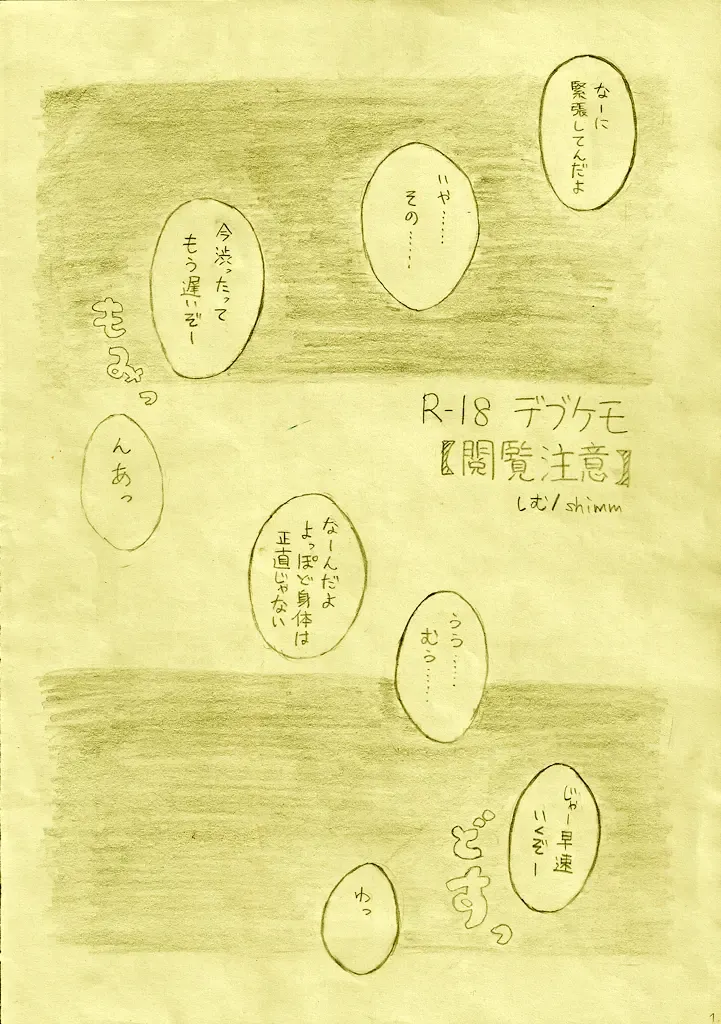 なーに
緊張してんだよ
いや……
その……
今渋ったって
もう遅いぞー
もみっ
R-18 デブケモ
【閲覧注意】
しむ/shimm
んあっ
なーんだよ
よっぽど身体は
正直じゃない
うう……
むぅ……
じゃー早速
いくぞー
どすっ
わっ
1